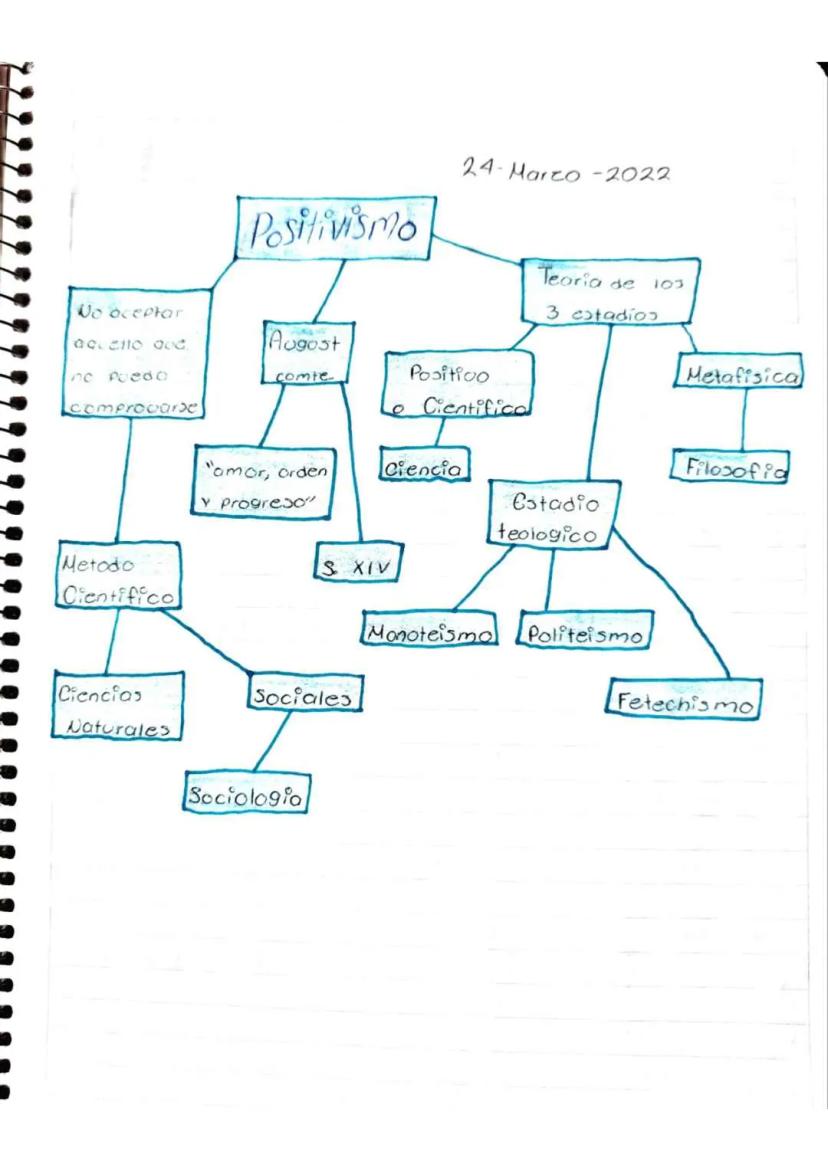 24-Marzo-2022
Positivismo
Teoria de los
3 estadios
No aceptar
aquello que
no pueda
comprovarse
August
comte
Positivo
o Cientifico
Metafisica
"amor, orden
y progreso"
Ciencia
Filosofia
Estadio
teologico
Metodo
Cientifico
S. XIV
Monoteismo
Politeismo
Ciencias
Naturales
Sociales
Fetechismo
Sociologia